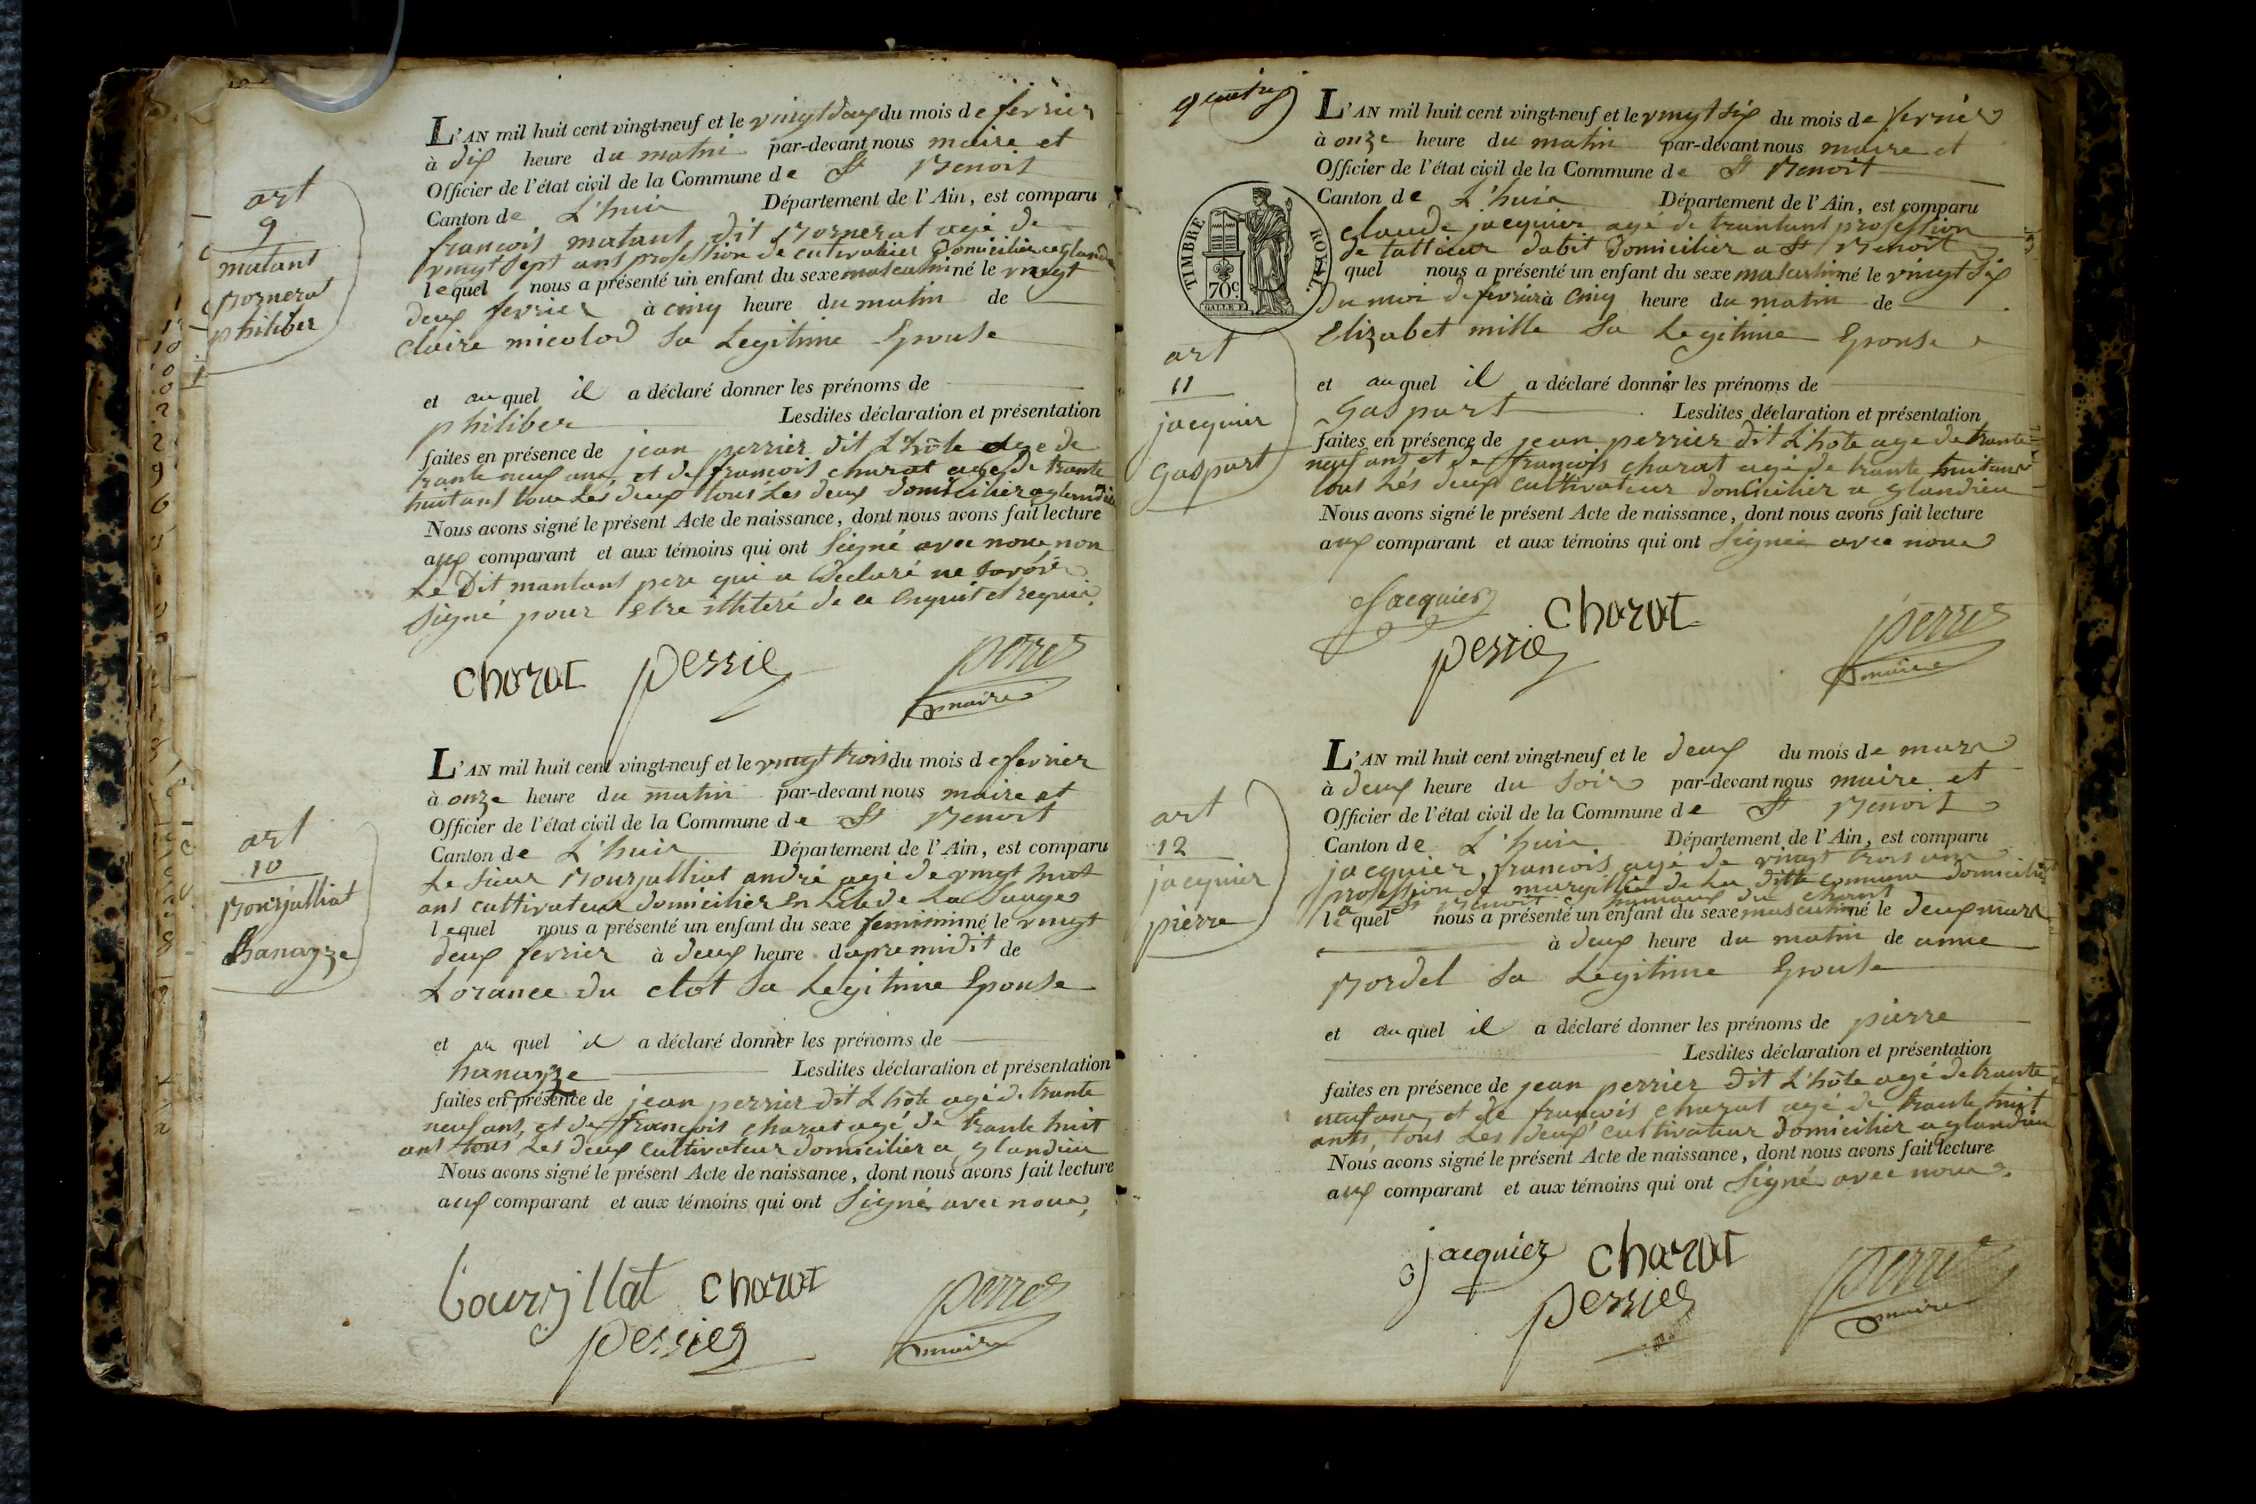 art
9
matant
Bornerat
philiber
L'AN mil huit cent vingt-neuf et le vingt deux du mois de fevrier
à dix heure du matin par-devant nous maire et
Officier de l'état civil de la Commune de St Benoit
Canton de L'huis Département de l'Ain, est comparu
francois matant dit Bornerat agé de
vingt sept ans profession de cutivatier Domicilier a glandi
lequel nous a présenté un enfant du sexe masculin né le vingt
deux fevrier à cinq heure du matin de
Claire micolod Sa Legitime Epouse
et auquel il a déclaré donner les prénoms de
philiber Lesdites déclaration et présentation
faites en présence de jean perrier dit L'hôte age de
trante neuf ans, et de françois charat agé de trante
huit ans tous Les deux tous Les deux domicilier a glandieu
Nous avons signé le présent Acte de naissance, dont nous avons fait lecture
aux comparant et aux témoins qui ont Signé avec nous non
Le Dit mantant pere qui a Declaré ne Savoir
Signé pour Estre illiteré de ce Enquit et requis.
charat perrie perret
maire
art
10
Bourjalliat
hanayze
L'AN mil huit cent vingt-neuf et le vingt trois du mois de fevrier
à onze heure du matin par-devant nous maire et
Officier de l'état civil de la Commune de St Benoit
Canton de L'huis Département de l'Ain, est comparu
Le Sieur Bourjalliat andré agé de vingt huit
ans cultivateur domicilier En L'ile de La Sauge
lequel nous a présenté un enfant du sexe feminin né le vingt
deux fevrier à deux heure dapremidit de
Lorance du clot Sa Legitime Epouse
et au quel il a déclaré donner les prénoms de
hanayze Lesdites déclaration et présentation
faites en présence de jean perrier dit L'hôte agé de trante
neuf ans, et de françois charat agé de trante huit
ans tous Les deux cultivateur domicilier a glandieu
Nous avons signé le présent Acte de naissance, dont nous avons fait lecture
aux comparant et aux témoins qui ont Signé avec nous,
Bourjillat charat perret
perrier maire
quatre
TIMBRE ROYAL.
70c
art
11
jacquier
Gaspart
L'AN mil huit cent vingt-neuf et le vingt six du mois de fevrier
à onze heure du matin par-devant nous maire et
Officier de l'état civil de la Commune de St Benoit
Canton de L'huis Département de l'Ain, est comparu
claude jacquier agé de trantant profession
de tallieur dabit Domicilier a St Benoit
lequel nous a présenté un enfant du sexe masculin né le vingt six
du moi de fevrier à cinq heure du matin de
Elizabet mille Sa Legitime Epouse
et auquel il a déclaré donner les prénoms de
Gaspart Lesdites déclaration et présentation
faites en présence de jean perrier dit L'hôte age de trante
neuf ans et de françois charat agé de trante huit ans
tous Les deux cultivateur domicilier a glandieu
Nous avons signé le présent Acte de naissance, dont nous avons fait lecture
aux comparant et aux témoins qui ont Signée avec nous
Jacquier charat perret
perrie maire
art
12
jacquier
pierre
L'AN mil huit cent vingt-neuf et le deux du mois de mars
à deux heure du Soir par-devant nous maire et
Officier de l'état civil de la Commune de St Benoit
Canton de L'huis Département de l'Ain, est comparu
jacquier, francois agé de vingt trois ans
profession de margullié de La ditte commune domicilié
a St Benoit hameaux du charut
lequel nous a présenté un enfant du sexe masculin né le deux mars
à deux heure du matin de anne
Bordel Sa Legitime Epouse
et auquel il a déclaré donner les prénoms de pierre
Lesdites déclaration et présentation
faites en présence de jean perrier dit L'hôte agé de trante
neuf ans, et de françois charat agé de trante huit
ants, tous Les deux cultivateur domicilier a glandieu
Nous avons signé le présent Acte de naissance, dont nous avons fait lecture
aux comparant et aux témoins qui ont Signé avec nous.
jacquier charat perret
perrier maire